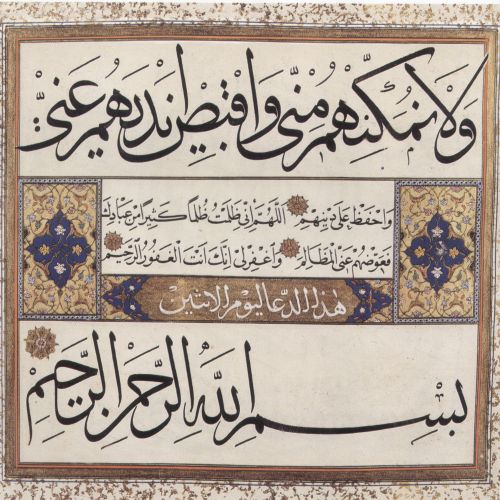 ولا تمكنهم مني واقبض ايديهم عني
واحفظ علي دينهم اللهم اني ظلمت ظلما كثيرا من عبادك
فعوضهم عني المظالم واغفر لي انك انت الغفور الرحيم
هذا الدعا ليوم الاثنين
بسم الله الرحمن الرحيم